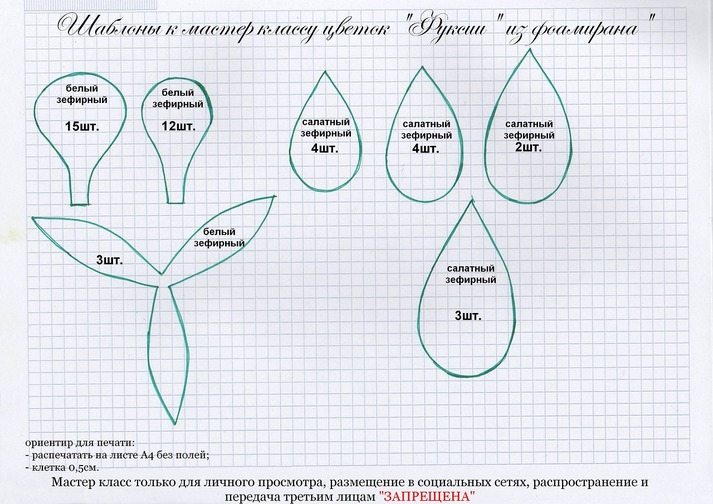 Шаблоны к мастер классу цветок "Фуксии " из фоамирана "
белый
зефирный
15шт.
белый
зефирный
12шт.
салатный
зефирный
4шт.
салатный
зефирный
4шт.
салатный
зефирный
2шт.
3шт.
белый
зефирный
салатный
зефирный
3шт.
ориентир для печати:
- распечатать на листе А4 без полей;
- клетка 0,5см.
Мастер класс только для личного просмотра, размещение в социальных сетях, распространение и
передача третьим лицам "ЗАПРЕЩЕНА"